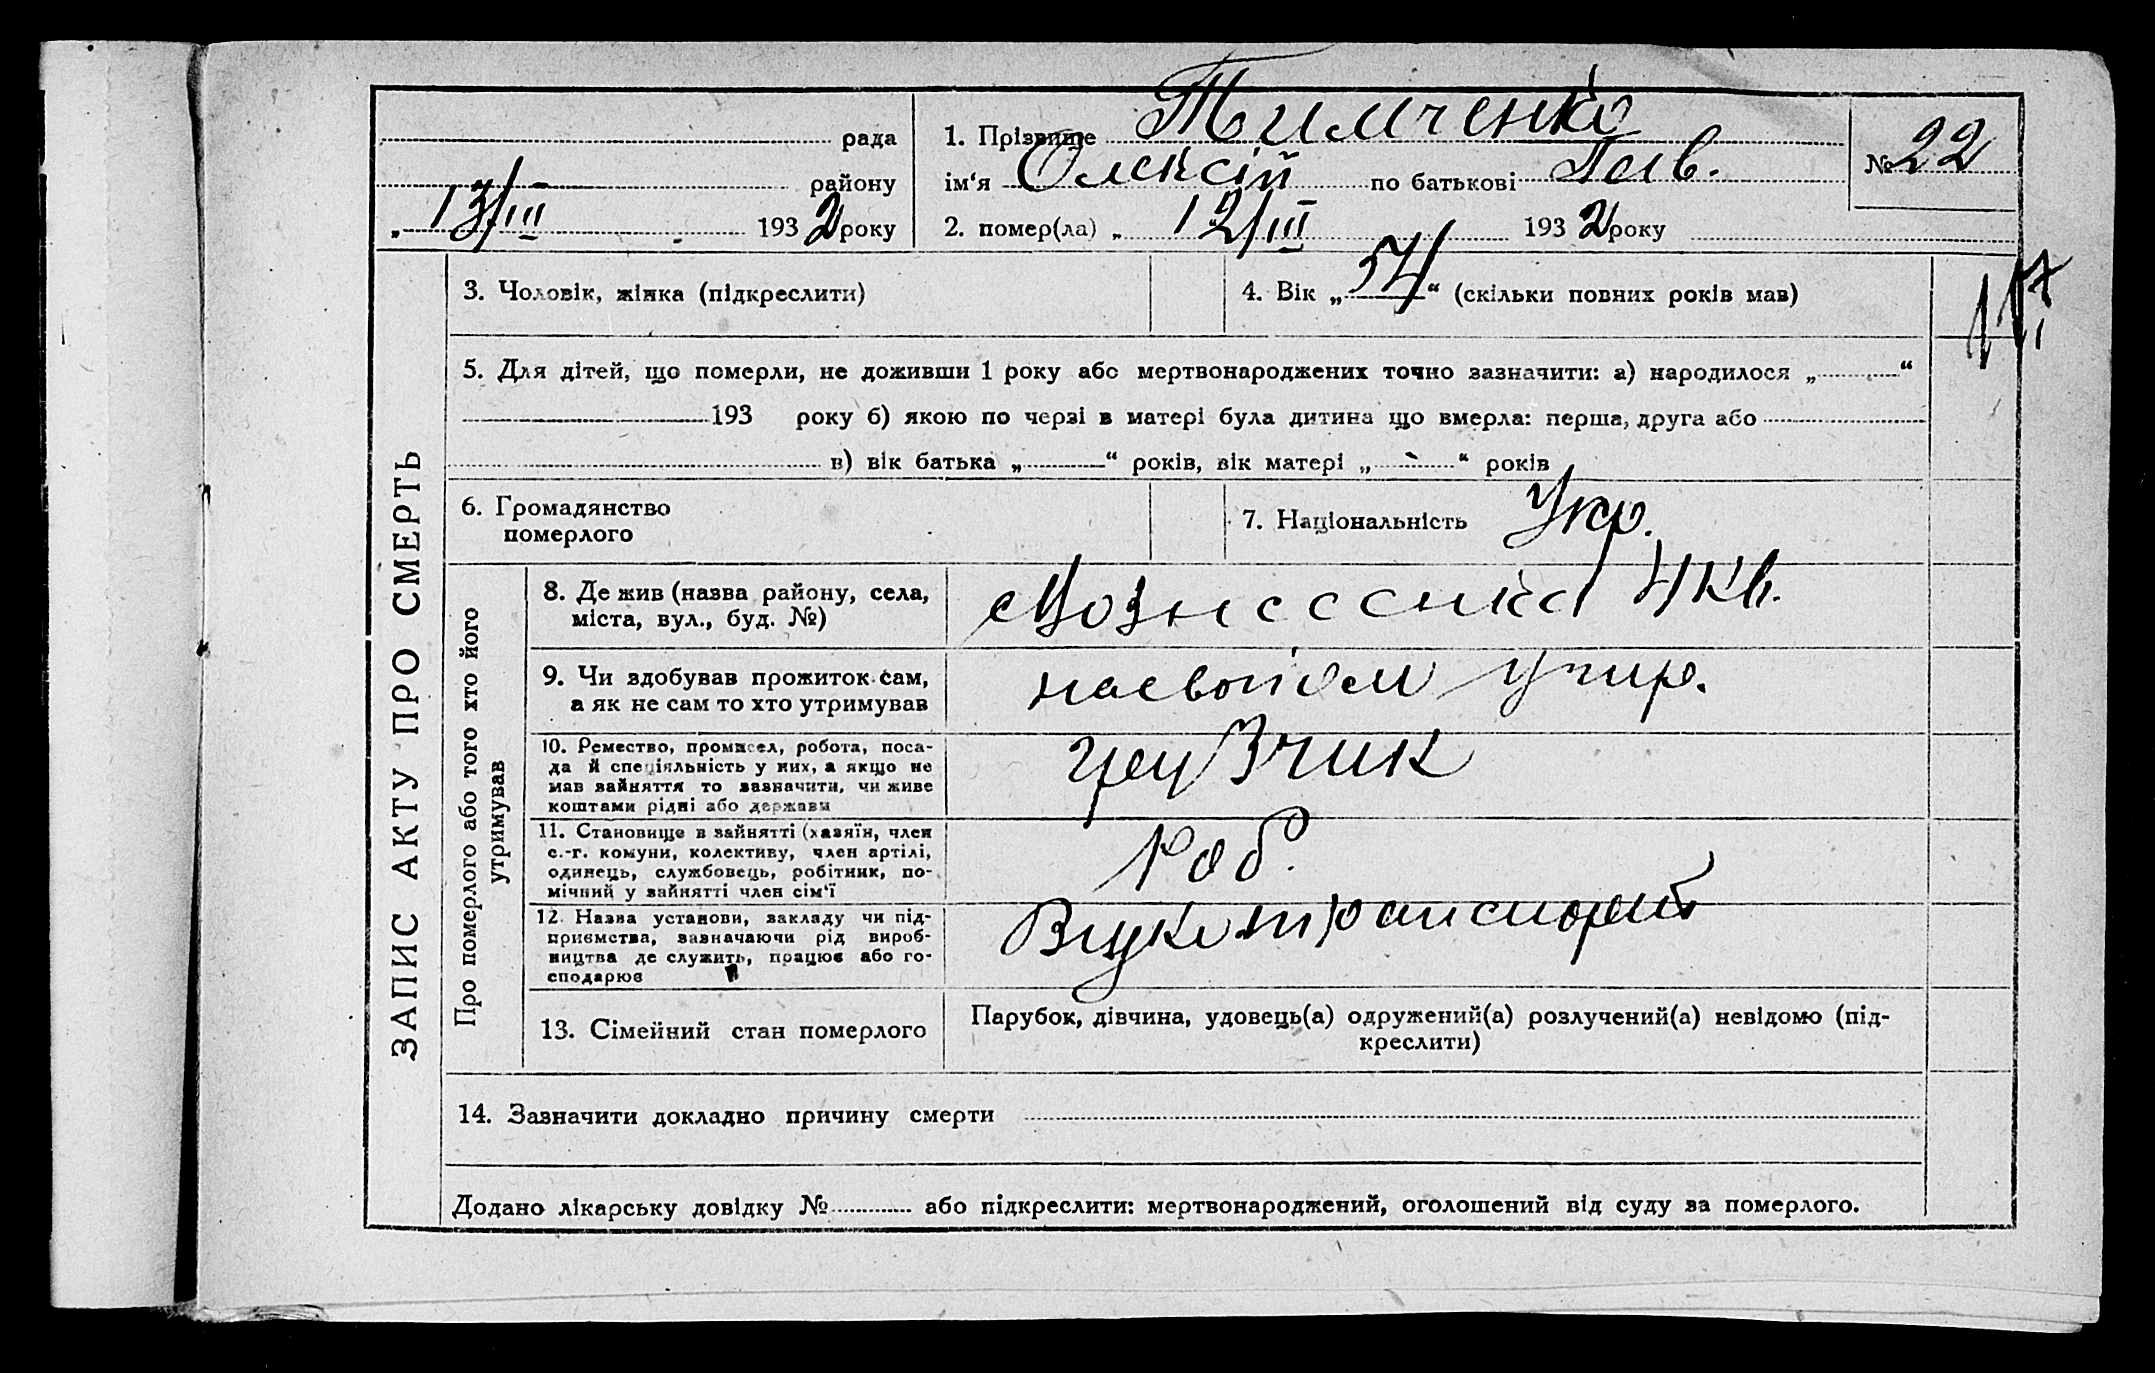 рада
1. Прізвище Тимченко
№ 22
району
ім'я Олексій по батькові Пав.
„ 13/III 1932 року
2. помер(ла) „ 12/III 1932 року
3. Чоловік, жінка (підкреслити)
4. Вік „54“ (скільки повних років мав)
5. Для дітей, що померли, не доживши 1 року або мертвонароджених точно зазначити: а) народилося „ “
193 року б) якою по черзі в матері була дитина що вмерла: перша, друга або
в) вік батька „ “ років, вік матері „ “ років
6. Громадянство
померлого
7. Національність Укр.
ЗАПИС АКТУ ПРО СМЕРТЬ
Про померлого або того хто його
утримував
8. Де жив (назва району, села,
міста, вул., буд. №)
Вознесенка 4 кв.
9. Чи здобував прожиток сам,
а як не сам то хто утримував
на своїом утир.
10. Ремество, промисел, робота, поса-
да й спеціяльність у них, а якщо не
мав зайняття то зазначити, чи живе
коштами рідні або держави
грузчик
11. Становище в зайнятті (хазяїн, член
с.-г. комуни, колективу, член артілі,
одинець, службовець, робітник, по-
мічний у зайнятті член сім'ї
Роб.
12. Назва установи, закладу чи під-
приємства, зазначаючи рід вироб-
ництва де служить, працює або го-
сподарює
13. Сімейний стан померлого
Парубок, дівчина, удовець(а) одружений(а) розлучений(а) невідомо (під-
креслити)
14. Зазначити докладно причину смерти
Додано лікарську довідку № або підкреслити: мертвонароджений, оголошений від суду за померлого.